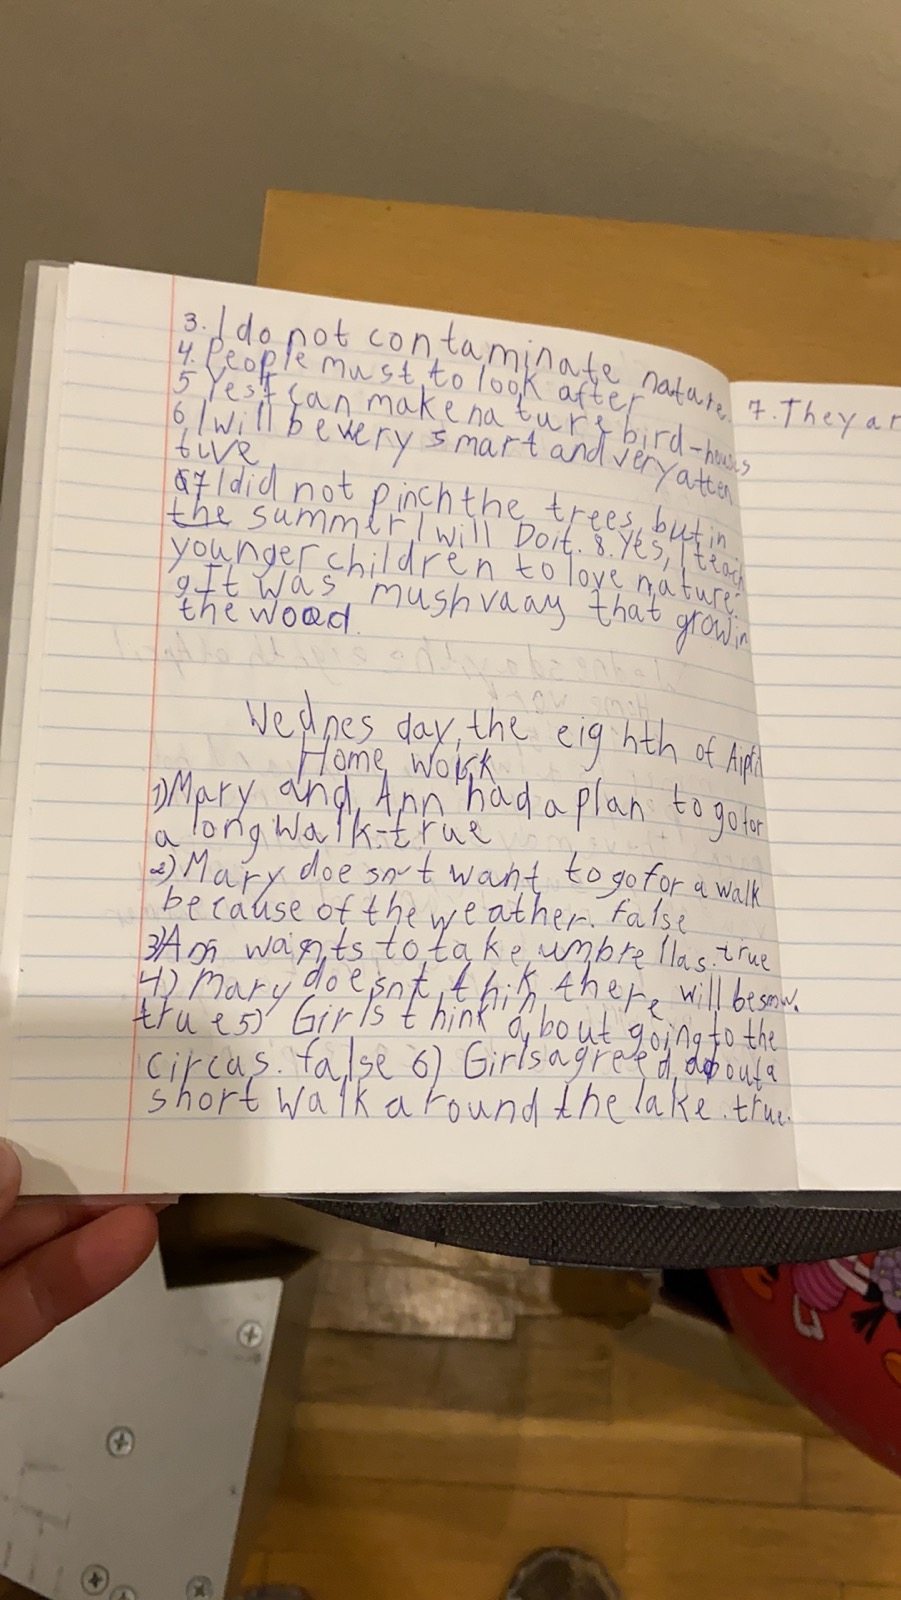 3. I do not contaminate nature.
4. People must to look after
5 Yes I can make nature bird-houses
6, I will be very smart and very atten
tive
7 I did not pinch the trees, but in
the summer I will Doit. 8. Yes, I teach
younger children to love nature.
9 It was mushvaay that grow in
the wood.
Wednes day, the eighth of Aipril
Home work
1) Mary and Ann had a plan to go for
a long walk-true
2) Mary doesn't want to go for a walk
because of the weather. false
3) Ann wants to take umbrellas. true
4) Mary doesnt think there will be snow.
true 5) Girls think about going to the
circas. false 6) Girls agreed about a
short walk around the lake. true.
7. They ar